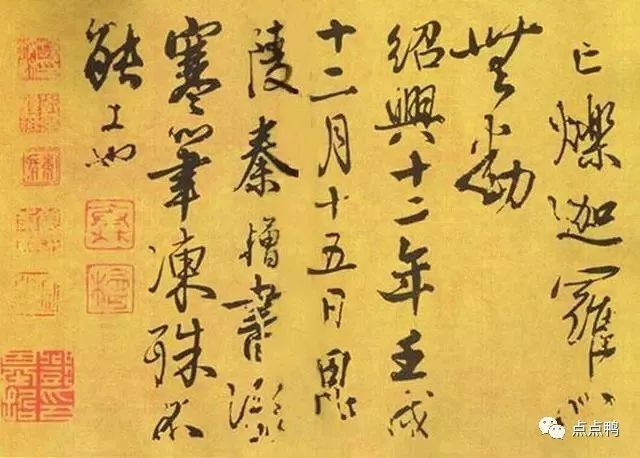 亡爍迦羅心
無動
紹興十二年壬戌
十二月十五日
陵秦檜書
寒筆凍殊不
能工也
点点鸭